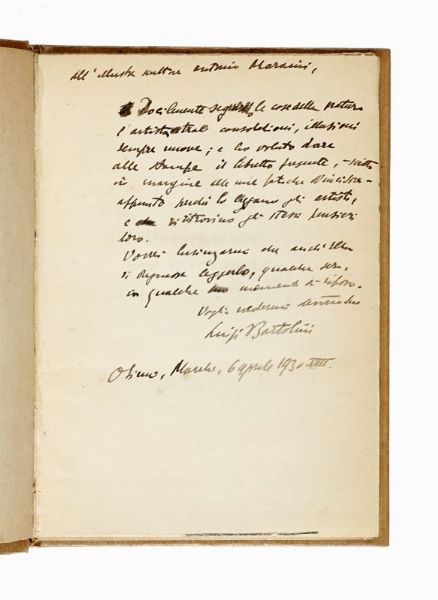 All'illustre scultore Antonio Maraini,
Docilmente segnando le cose della natura
l'artista trae consolazioni, illusioni
sempre nuove; e ho voluto dare
alle stampe il libretto presente, scritto
in margine alle mie fatiche d'incisore
appunto perché lo leggano gli artisti,
e vi ritrovino gli stessi pensieri
loro.
Vorrei lusingarmi che anch'Ella
si degnasse leggerlo, qualche sera,
in qualche momento di riposo.
Voglia credermi
Luigi Bartolini
Osimo, Marche, 6 aprile 1930 VIII.